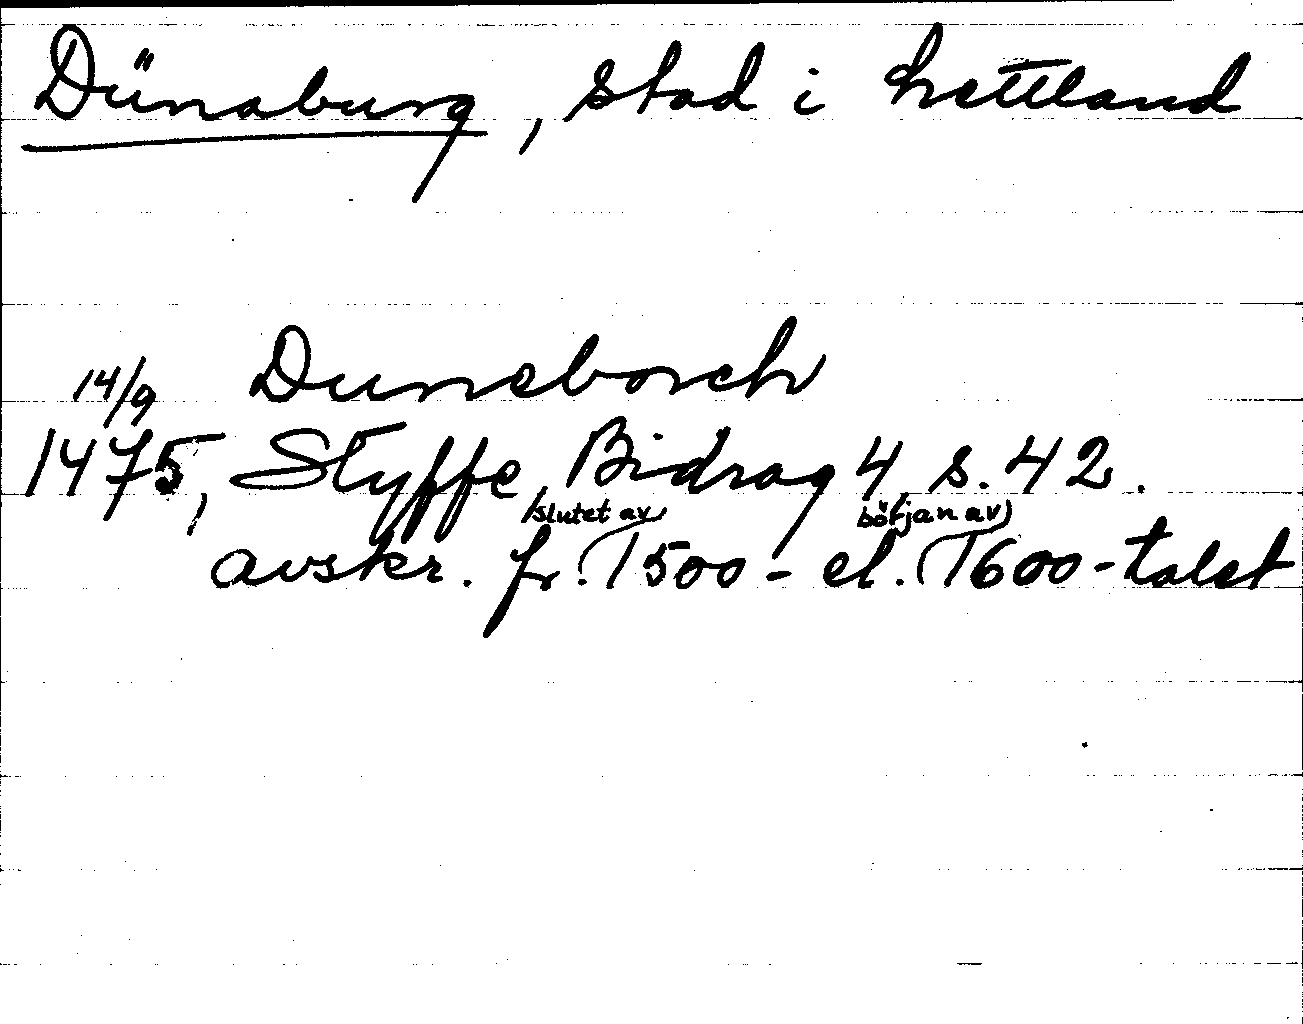 Dünaburg, stad i Lettland
14/9 Duneborch
1475, Styffe, Bidrag 4, s. 42.
(slutet av) början av)
avskr. fr. 1500- el. 1600-talet